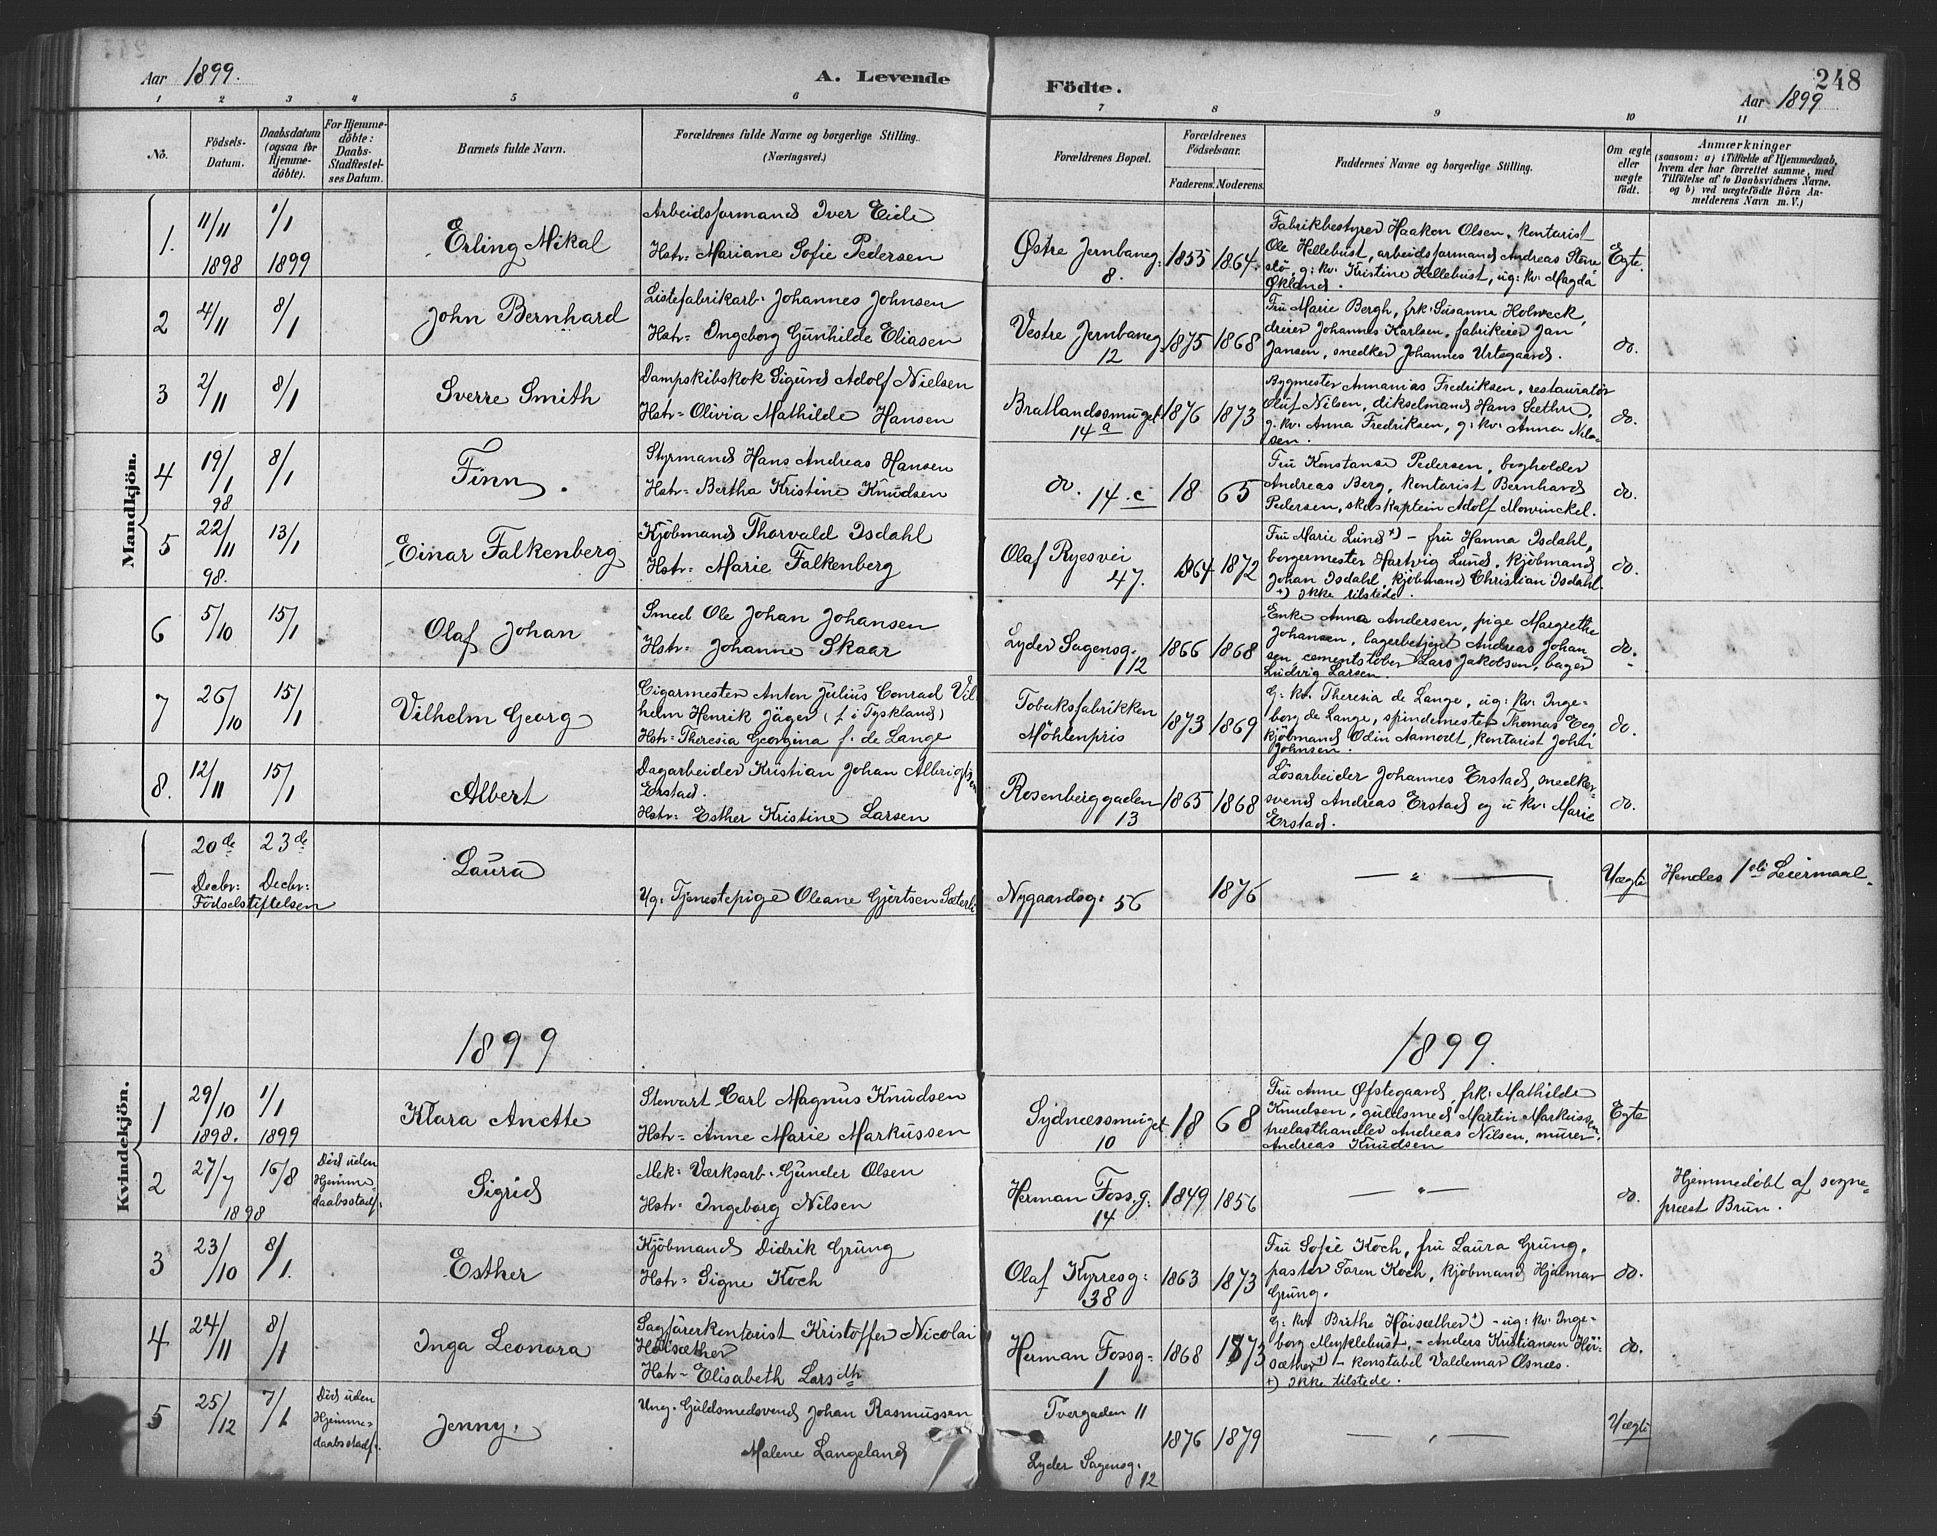 Aar 1899.
A. Levende
Födte.
248
Aar 1899
1 2 3 4 5 6 7 8 9 10 11
No.
Födsels-
Datum.
Daabsdatum
(ogsaa for
Hjemme-
döbte).
For Hjemme-
döbte:
Daabs-
Stadfestel-
ses Datum.
Barnets fulde Navn.
Forældrenes fulde Navne og borgerlige Stilling.
(Næringsvei.)
Forældrenes Bopæl.
Forældrenes
Födselsaar.
Faderens. Moderens.
Faddernes Navne og borgerlige Stilling.
Om ægte
eller
uægte
födt.
Anmærkninger
(saasom: a) i Tilfælde af Hjemmedaab,
hvem der har forrettet samme, med
Tilföielse af to Daabsvidners Navne,
og b) ved uægtefödte Börn An-
melderens Navn m. V.)
Mandkjön.
1. 11/11 1898 1/1 1899
Erling Mikal
Arbeidsformand Iver Eide
Hstr: Mariane Sofie Pedersen
Østre Jernbaneg:
8.
1855 1864.
Fabrikbestyrer Haakon Olsen, kontorist
Ole Hellebust, arbeidsformand Andreas Stene
slö, g: kv: Kristine Hellebust, ug: kv: Magda
Økland.
Egte.
2 4/11 8/1
John Bernhard
Listefabrikarb: Johannes Johnsen
Hstr: Ingeborg Gunhilde Eliasen
Vestre Jernbaneg:
12
1875 1868
Fru Marie Bergh, frk: Susanna Holweck,
dreier Johannes Karlsen, fabrikeier Jan
Jansen, snedker Johannes Urtegaard.
do.
3 2/11 8/1
Sverre Smith
Dampskibskok Sigurd Adolf Nielsen
Hstr: Olivia Mathilde Hansen
Bratlandssmuget
14 a
1876 1873
Bygmester Annanias Fredriksen, restauratör
Oluf Nilsen, dikselmand Hans Sæthre,
g: kv: Anna Fredriksen, g: kv: Anna Nil-
sen.
do.
4 19/1 98 8/1
Finn.
Styrmand Hans Andreas Hansen
Hstr: Bertha Kristine Knudsen
do. 14 c
18 65
Fru Konstanse Pedersen, bogholder
Andreas Berg, kontorist Bernhard
Pedersen, skibskaptein Adolf Mowinckel.
do.
5 22/11 98. 13/1
Einar Falkenberg
Kjöbmand Thorvald Isdahl
Hstr: Marie Falkenberg
Olaf Ryesvei
47.
1864 1872
Fru Marie Lund +) - fru Hanna Isdahl,
borgermester Hartvig Lund, kjöbmand
Johan Isdahl, kjöbmand Christian Isdahl.
+) ikke tilstede.
do.
6 5/10 15/1
Olaf Johan
Smed Ole Johan Johansen
Hstr: Johanne Skaar
Lyder Sagensg.
12
1866 1868
Enke Anna Andersen, pige Margrethe
Johansen, lagerbetjent Andreas Johan
sen, cementstöber Lars Jakobsen, bager
Ludvig Larsen.
do.
7 26/10 15/1
Vilhelm Georg
Cigarmester Anton Julius Conrad Vil
helm Henrik Jäger (f. i Tyskland)
Hstr: Theresia Georgina f. de Lange
Tobaksfabrikken
Möhlenpris
1873 1869
G: kv. Theresia de Lange, ug: kv: Inge-
borg de Lange, spindemester Thomas Eeg,
kjöbmand Odin Aamodt, kontorist Johan
Johnsen.
do.
8. 12/11 15/1
Albert
Dagarbeider Kristian Johan Albrigtsen
Erstad.
Hstr: Esther Kristine Larsen
Rosenberggaden
13
1865 1868
Lösarbeider Johannes Erstad, snedker-
svend Andreas Erstad og u kv: Marie
Erstad.
do.
— 20de Decbr: 23de Decbr:
Födselstiftelsen
Laura
Ug: Tjenestepige Oleane Gjertsen
Nygaardsg: 56
1876
— „ —
Uægte
Hendes 1ste Leiermaal.
1899
1899.
Kvindekjön.
1 29/10 1898. 1/1 1899
Klara Anette
Stewart Carl Magnus Knudsen
Hstr: Anne Marie Markussen
Sydnæssmuget
10
18 68
Fru Anne Øfstegaard, frk: Mathilde
Knudsen, guldsmed Martin Markussen,
trælasthandler Andreas Nilsen, murer
Andreas Knudsen
Egte
2 27/7 16/8 1898
Död uden
Hjemme-
daabsstadf:
Sigrid
Mek: Værksarb: Gunder Olsen
Hstr: Ingeborg Nilsen
Herman Fossg:
14
1849 1856
— „ —
do.
Hjemmedöbt af sogne-
præst Brun.
3 23/10 8/1.
Esther
Kjöbmand Didrik Grung
Hstr: Signe Koch
Olaf Kyrresg:
38
1863 1873
Fru Sofie Koch, fru Laura Grung,
pastor Søren Koch, kjöbmand Hjalmar
Grung.
do.
4 24/11 8/1
Inga Leonora
Sagförerkontorist Kristoffer Nicolai
Höisæther
Hstr: Elisabeth Larsdtr
Herman Fossg:
1
1868 1873
G: kv: Brithe Höisæther +) - ug: kv: Inge-
borg Myklebust, - Anders Kristiansen Höi-
sæther +) - konstabel Valdemar Osnæs.
+) ikke tilstede.
do.
5 25/12 7/1
Död uden
Hjemme-
daabsstadf:
Jenny.
Ung. Guldsmedsvend Johan Rasmussen
Malene Langeland
Tvergaden 11
Lyder Sagensg:
12
1876 1879
— „ —
Uægte